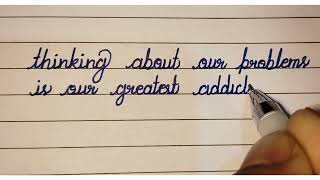 thinking about our problems
is our greatest addict